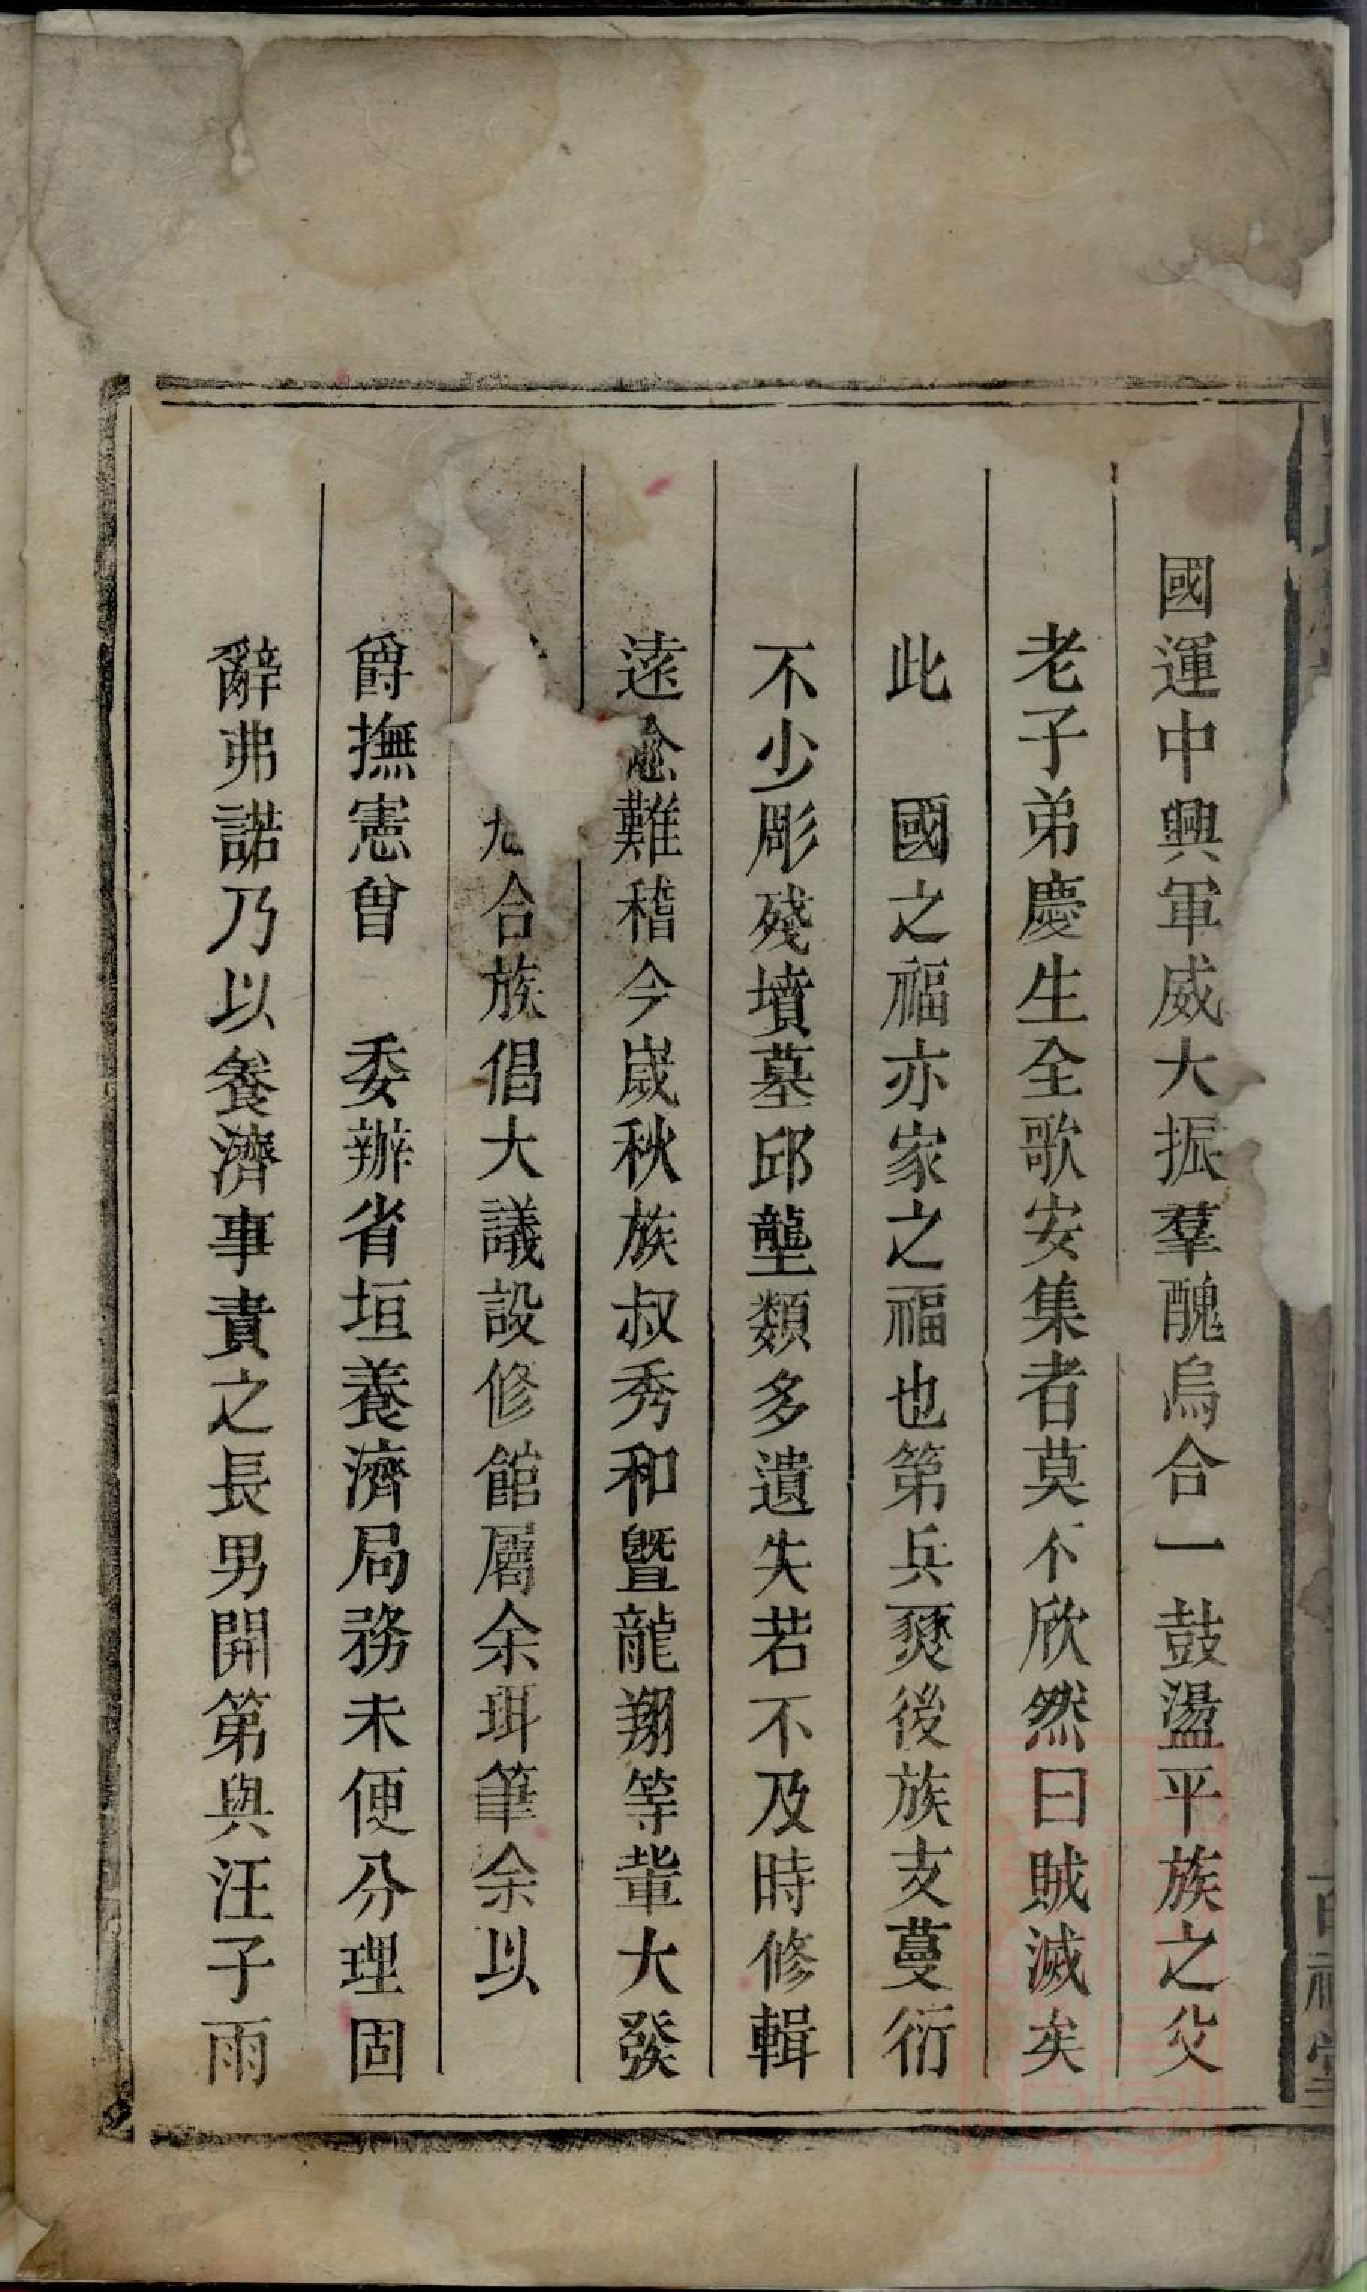 國運中興軍威大振羣醜烏合一鼓盪平族之父
老子弟慶生全歌安集者莫不欣然曰賊滅矣
此　國之福亦家之福也第兵燹後族支蔓衍
不少彫殘墳墓邱壟類多遺失若不及時修輯
遠愈難稽今嵗秋族叔秀和暨龍翔等輩大發
合族倡大議設修館屬余珥筆余以
爵撫憲曾　委辦省垣養濟局務未便分理固
辭弗諾乃以養濟事責之長男開第與汪子雨